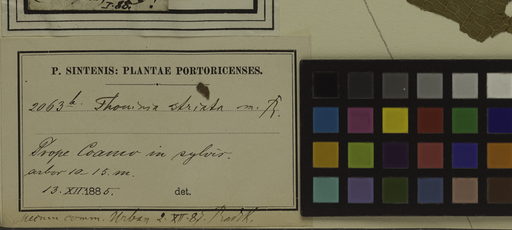 I. 85.
P. SINTENIS: PLANTAE PORTORICENSES.
2063 b. Thouinia striata m. R.
Prope Coamo in sylvis.
arbor 10-15 m.
13. XII. 1885. det.
comm. Urban 2. XII. 87. Radlk.